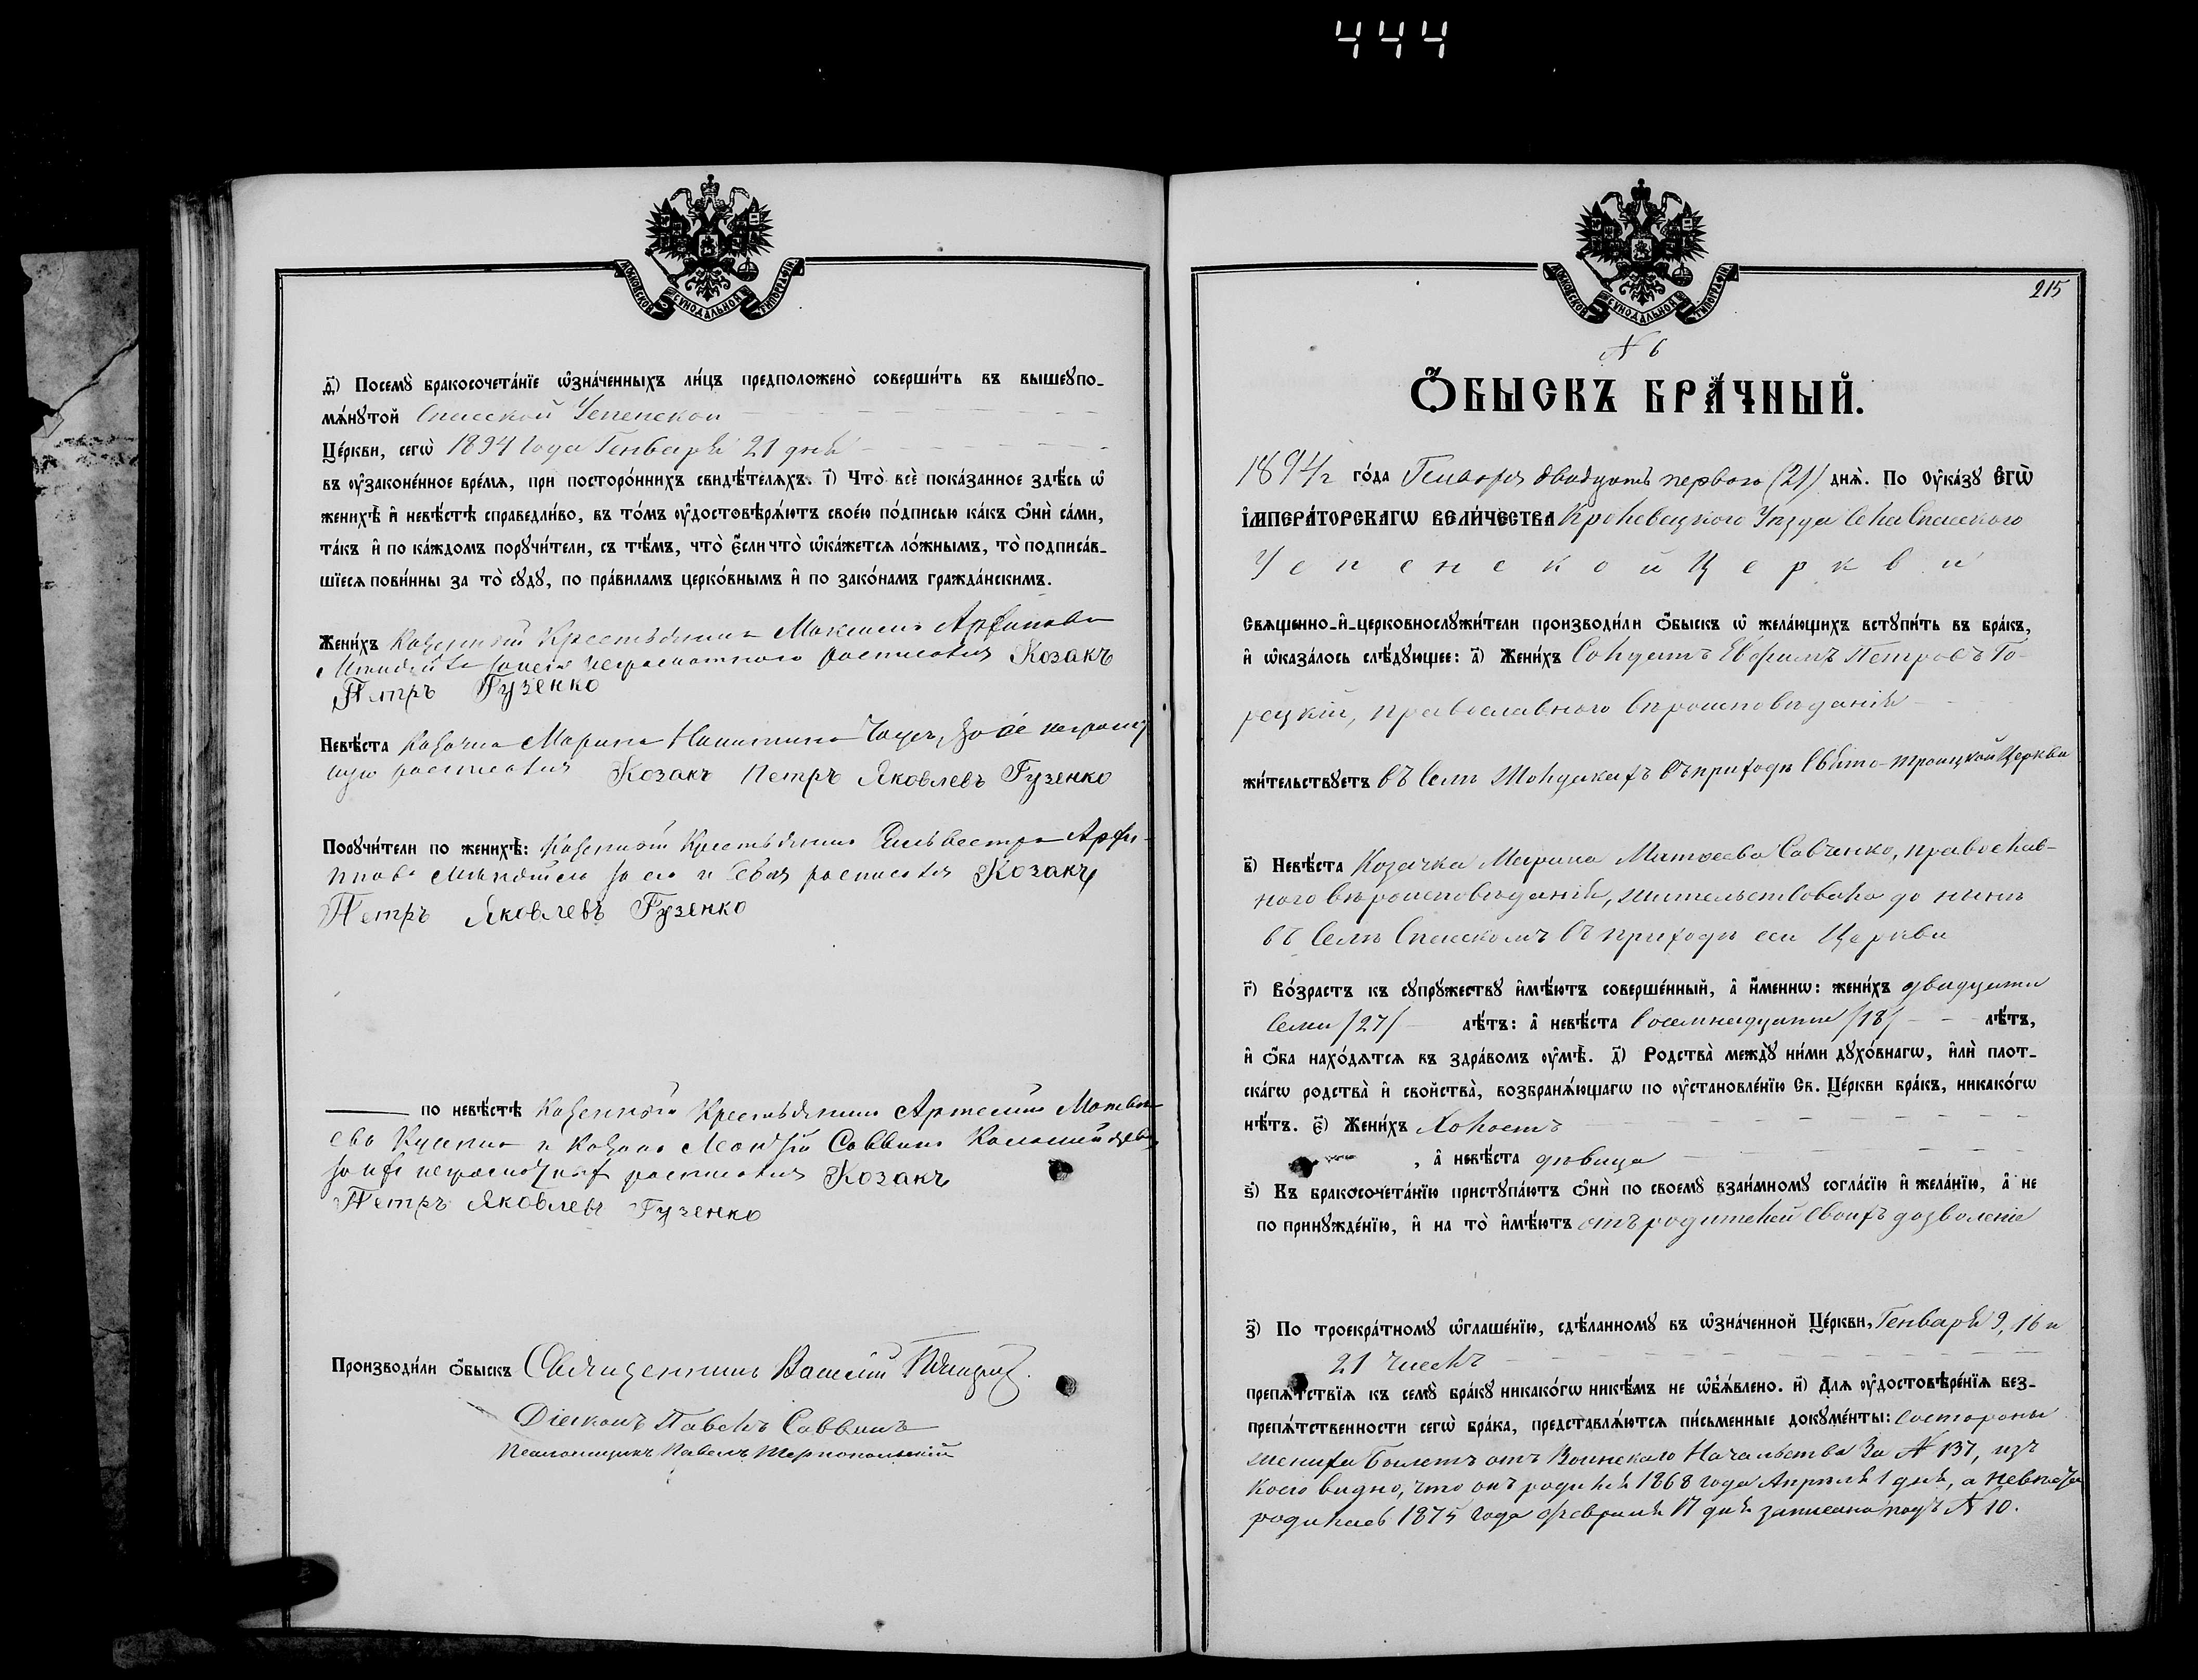 444
МОСКОВСКОЙ СѴНОДАЛЬНОЙ ТИПОГРАФІИ
д҃і) Посемꙋ̀ бракосочета́нїе ѡ҆зна́ченныхъ ли́цъ предположено̀ соверши́ть въ вышеꙋпо-
мѧ́нꙋтой Спасской Успенской
Це́ркви, сегѡ̀ 1894 года Генваря 21 дня
въ ᲂу҆законе́нное вре́мѧ, при посторо́ннихъ свидѣ́телѧхъ. і҃) Что̀ всѐ пока́занное здѣ́сь ѡ҆
женихѣ̀ и҆ невѣ́стѣ справедли́во, въ то́мъ ᲂу҆достовѣрѧ́ютъ свое́ю по́дписью ка́къ ѻ҆нѝ са́ми,
та́къ и҆ по ка́ждомъ порꙋчи́тели, съ тѣ́мъ, что̀ є҆́сли что̀ ѡ҆ка́жетсѧ ло́жнымъ, то̀ подписа́в-
шїесѧ пови́нны за то̀ сꙋдꙋ̀, по пра́виламъ церко́внымъ и҆ по зако́намъ гражда́нскимъ.
Жени́хъ Казенный Крестьянинъ Максимъ
неграмотнаго расписался Козакъ
Петръ Гузенко
Невѣ́ста Козачка Марина Никитина за ее неграмот
ную расписался Козакъ Петръ Яковлевъ Гузенко
Порꙋчи́тели по женихѣ̀: Казенный Крестьянинъ Сильвестръ
за его и себя расписался Козакъ
Петръ Яковлевъ Гузенко
по невѣ́стѣ Казенный Крестьянинъ Артемій Матвѣ
евъ и Козакъ Саввинъ
за ихъ неграмотныхъ расписался Козакъ
Петръ Яковлевъ Гузенко
Производи́ли ѻ҆́быскъ Священникъ Василій
Діаконъ Павелъ Саввинъ
Псаломщикъ Павелъ Тернопольскій
МОСКОВСКОЙ СѴНОДАЛЬНОЙ ТИПОГРАФІИ
215
№ 6
Ѻ҆́БЫСКЪ БРА́ЧНЫЙ.
1894 г го́да Генваря двадцать перваго (21) днѧ̀. По ᲂу҆ка́зꙋ є҆гѡ̀
і҆мпера́торскагѡ вели́чества Кролевецкаго Уѣзда Села Спасскаго
Успенской Церкви
Свѧщенно-и҆-церковнослꙋжи́тели производи́ли ѻ҆́быскъ ѡ҆ жела́ющихъ встꙋпи́ть въ бра́къ,
и҆ ѡ҆каза́лось слѣ́дꙋющее: а҃) Жени́хъ Солдатъ Ефримъ Петровъ Го-
рецкій, православнаго вѣроисповѣданія
жи́тельствꙋетъ въ Селѣ Жолдакахъ въ приходѣ Свято-Троицкой Церкви
в҃) Невѣ́ста Козачка Марина Матѳеева Савченко, православ-
наго вѣроисповѣданія, жительствовала до нынѣ
въ Селѣ Спасскомъ въ приходѣ сей Церкви
г҃) Во́зрастъ къ сꙋпрꙋ́жествꙋ и҆мѣ́ютъ соверше́нный, а҆ и҆́меннѡ: жени́хъ двадцати
семи /27/ лѣ́тъ: а҆ невѣ́ста восемнадцати /18/ лѣ́тъ,
и҆ ѻ҆́ба нахо́дѧтсѧ въ здра́вомъ ᲂу҆мѣ̀. д҃) Родства̀ междꙋ̀ ни́ми дꙋхо́внагѡ, и҆лѝ плот-
ска́гѡ родства̀ и҆ свойства̀, возбранѧ́ющагѡ по ᲂу҆становле́нїю Св. Це́ркви бра́къ, никако́гѡ
нѣ́тъ. є҃) Жени́хъ Холостъ
, а҆ невѣ́ста дѣвица
ѕ҃) Къ бракосочета́нїю пристꙋпа́ютъ ѻ҆нѝ по своемꙋ̀ взаи́мномꙋ согла́сїю и҆ жела́нїю, а҆ не
по принꙋжде́нїю, и҆ на то̀ и҆мѣ́ютъ отъ родителей своихъ дозволеніе
з҃) По троекра́тномꙋ ѡ҆глаше́нїю, сдѣ́ланномꙋ въ ѡ҆зна́ченной Це́ркви, Генваря 9, 16 и
21 числъ
препѧ́тствїѧ къ семꙋ̀ бра́кꙋ никако́гѡ никѣ́мъ не ѡ҆б̾ѧ́влено. и҃) Длѧ ᲂу҆достовѣре́нїѧ без-
препѧ́тственности сегѡ̀ бра́ка, представлѧ́ютсѧ пи́сьменные докꙋме́нты: со стороны
жениха Билетъ отъ Воинскаго Начальства за № 137, изъ
коего видно, что онъ родился 1868 года Апрѣля 1 дня, а невѣста
родилась 1875 года Февраля 17 дня записана подъ № 10.